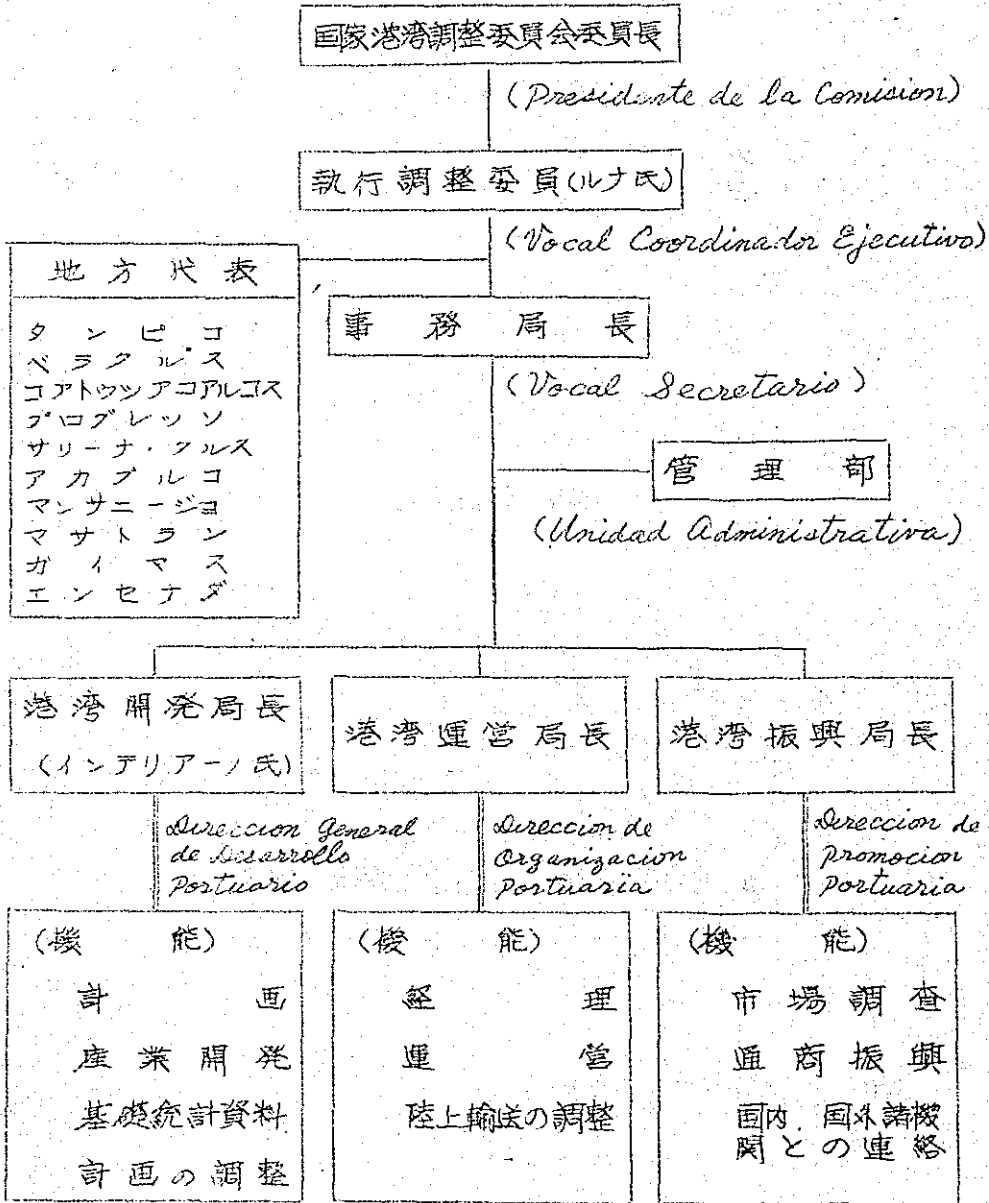 国家港湾調整委員会委員長
(Presidente de la Comision)
執行調整委員(ルナ氏)
(Vocal Coordinador Ejecutivo)
地方代表
タンピコ
ベラクルス
コアトウツアコアルコス
プログレッソ
サリーナ・クルス
アカプルコ
マンサニージョ
マサトラン
ガイマス
エンセナダ
事務局長
(Vocal Secretario)
管理部
(Unidad Administrativa)
港湾開発局長
(インテリアーノ氏)
港湾運営局長
港湾振興局長
Direccion General
de Desarrollo
Portuario
Direccion de
Organizacion
Portuaria
Direccion de
Promocion
Portuaria
(機能)
計画
産業開発
基礎統計資料
計画の調整
(機能)
経理
運営
陸上輸送の調整
(機能)
市場調査
通商振興
国内、国外諸機
関との連絡